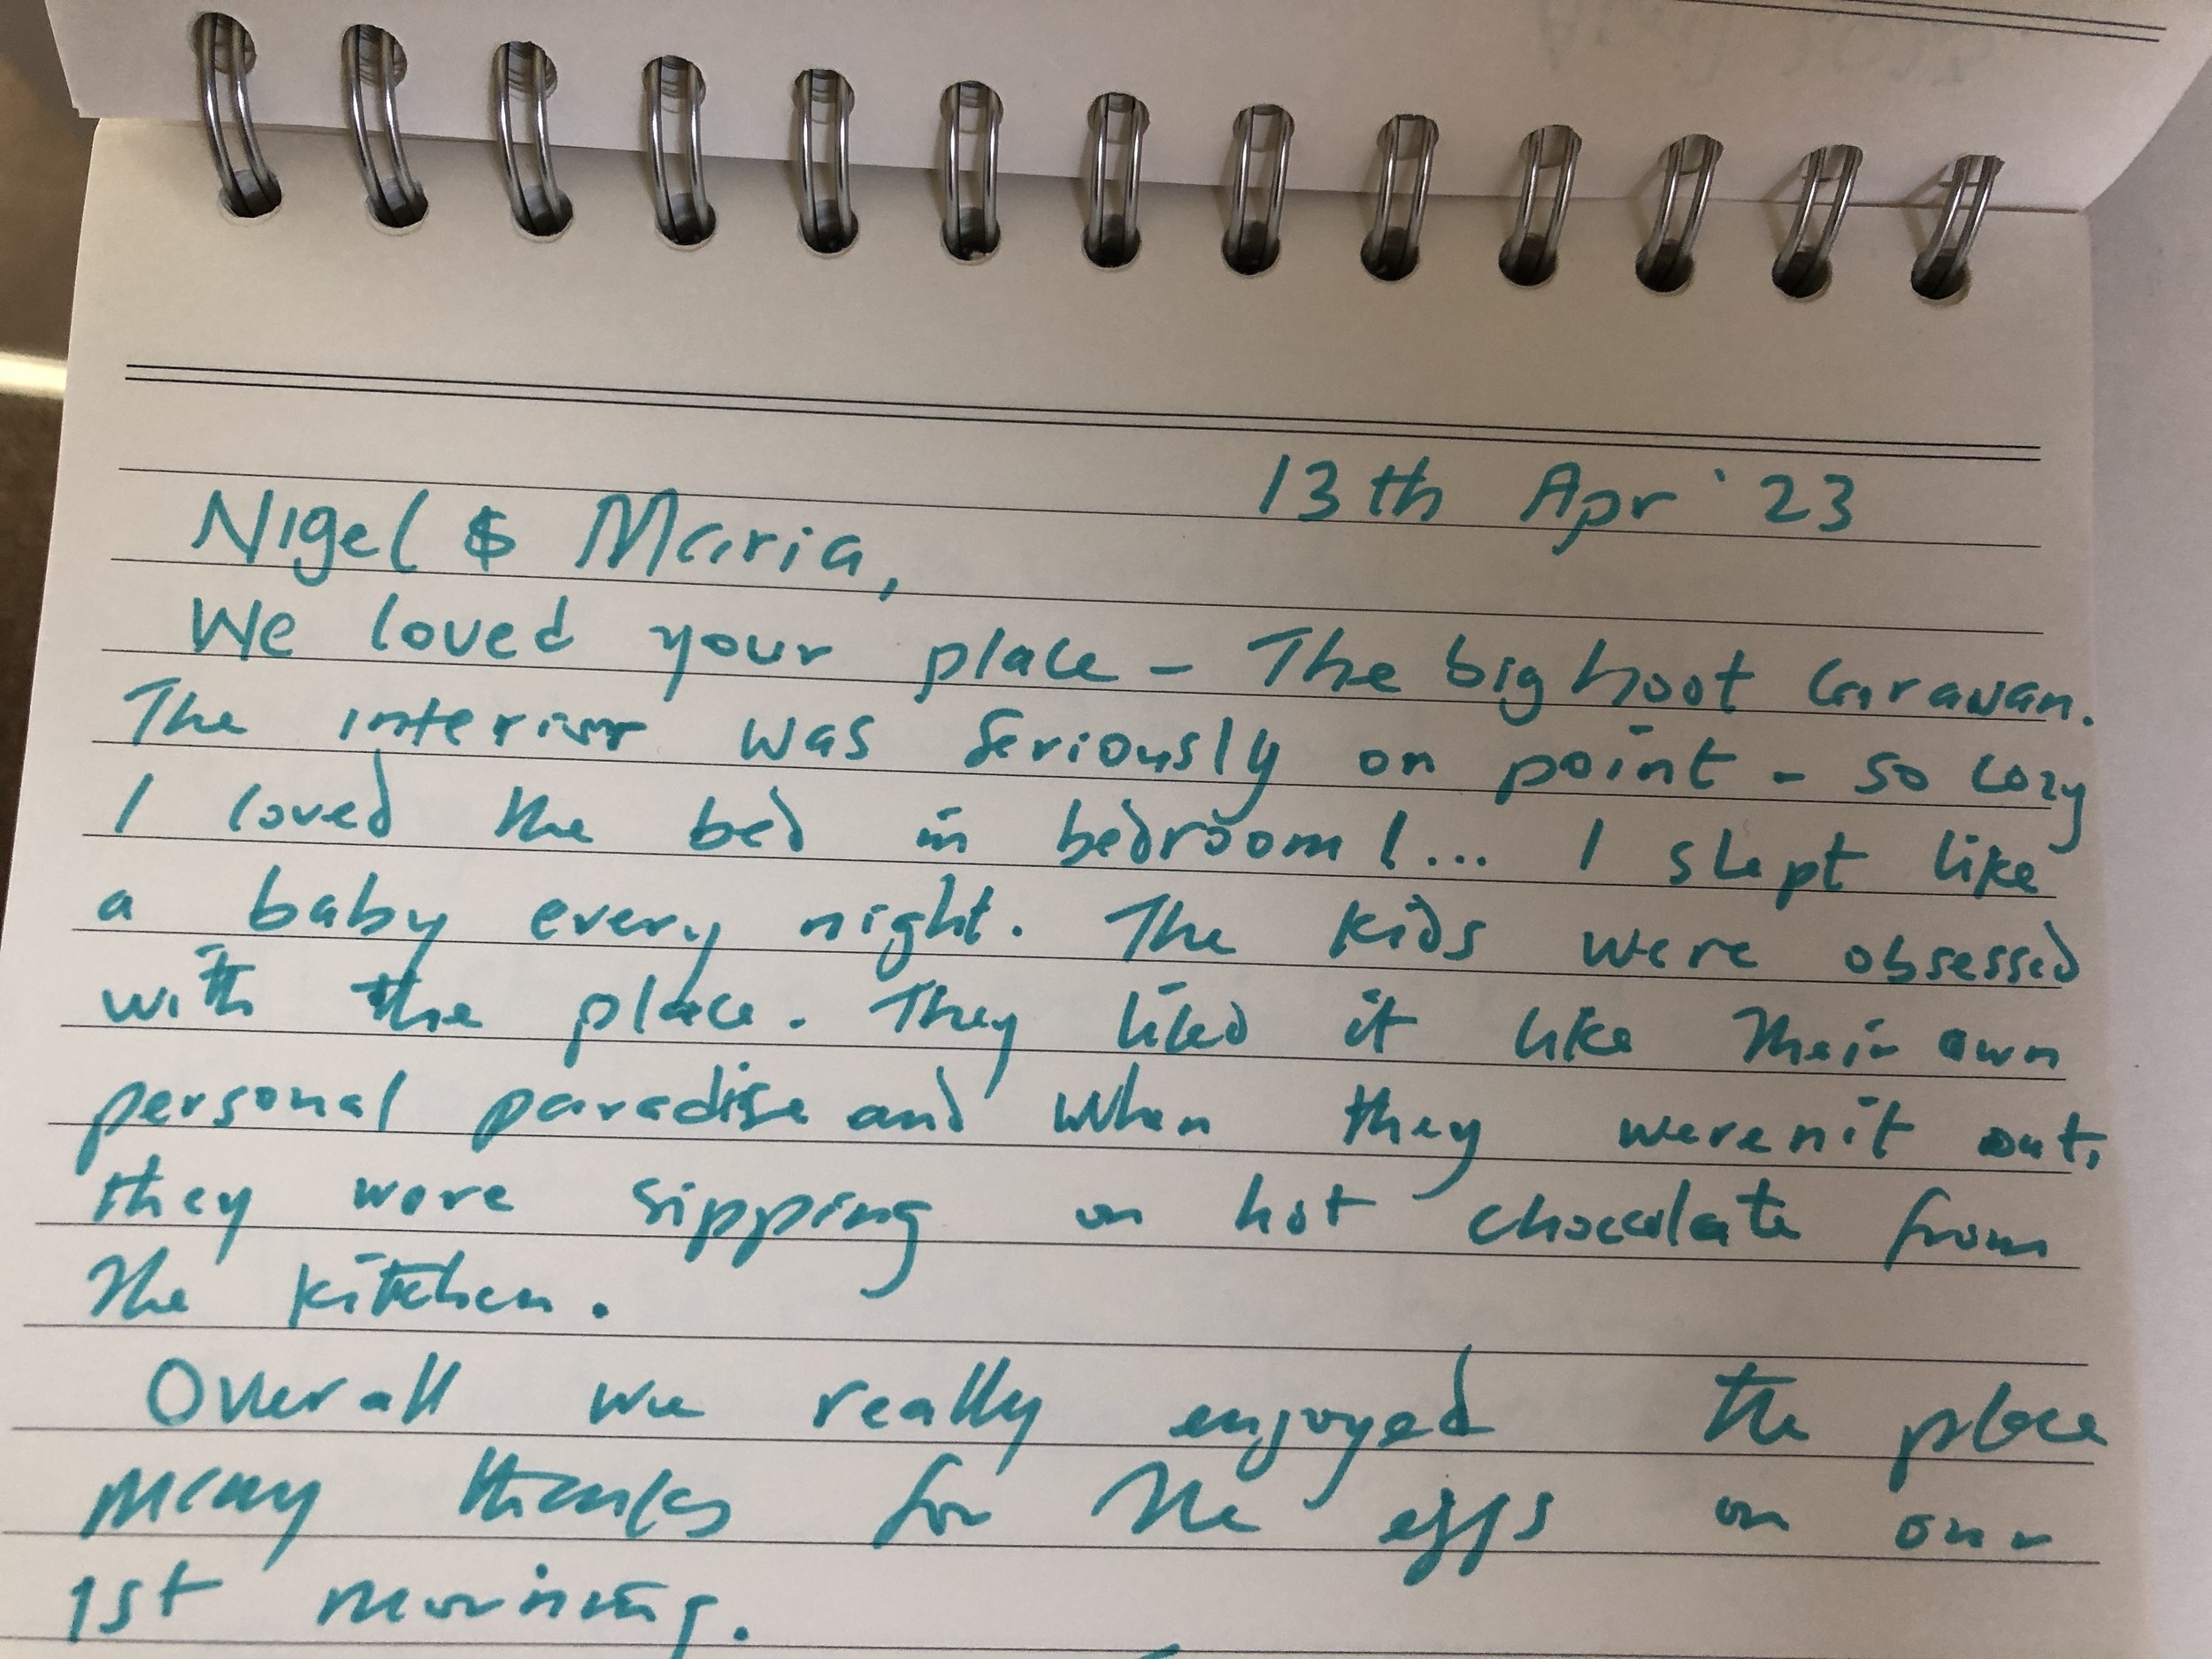 13th Apr '23
Nigel & Maria,
We loved your place - The big hoot Caravan.
The interior was seriously on point - so cozy
I loved the bed in bedroom!... I slept like
a baby every night. The kids were obsessed
with the place. They liked it like their own
personal paradise and when they weren't out,
they were sipping on hot chocolate from
the kitchen.
Overall we really enjoyed the place
many thanks for the eggs on our
1st morning.